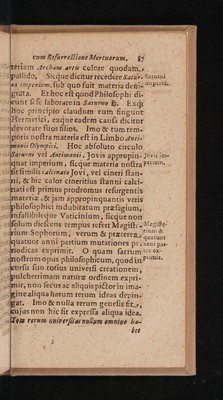 cum Resurrectione Mortuorum. 87
teriam Archææ artis colore quodam
pallido. Sicque dicitur recedere Satur-
ni imperium, sub quo fuit materia deni-
grata. Et hoc est quod Philosophi di-
cunt se se laborare in Saturno ♄. Ex
hoc principio claudum eum fingunt
Hermetici, exque eadem causa dicitur
devorare suos filios. Imo & tum tem-
poris nostra materia est in Limbo Anti-
monii Olympici. Hoc absoluto circulo
Saturno vel Antimonii, Jovis appropin-
quat imperium, sicque materia nostra
fit similis calcinato Jovi, vel cineri stan-
ni, & hic calor cineritius stanni calci-
nati est primus prodromus resurgentis
materiæ, & jam appropinquantis veris
philosophici indubitatum præsagium,
infallibileque Vaticinium, sicque non
solum dulcens tempus refert Magiste-
rium Sophorum, verum & præterea
quatuor anni partium mutationes pe-
riodicas exprimit. O quam sacrum
nostrum opus philosophicum, quod in
cursu suo totius universi creationem,
pulcherrimam naturæ ordinem expri-
mit, non secus ac aliquis pictor in ima-
gine aliqua harum rerum ideas depin-
gat. Imo & nulla rerum genesis fit,
cujus non hic sit expressa aliqua idea.
Tam rerum universitas nullum omnino ha-
bet
Saturni
imperiũ.
Jovis im-
perium.
Magiste-
rium &
quatuor
anni par-
tes ex-
primit.